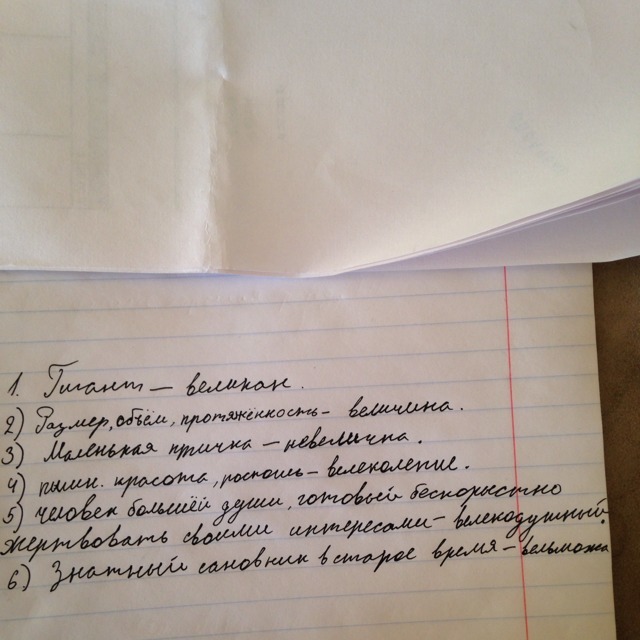 1. Гигант – великан.
2) Размер, объём, протяжённость – величина.
3) Маленькая птичка – невеличка.
4) пышн. красота, роскошь – велеколепие.
5) человек большей души, готовый бескорыстно
жертвовать своими интересами – велекодушный.
6) Знатный сановник в старое время – вельможа